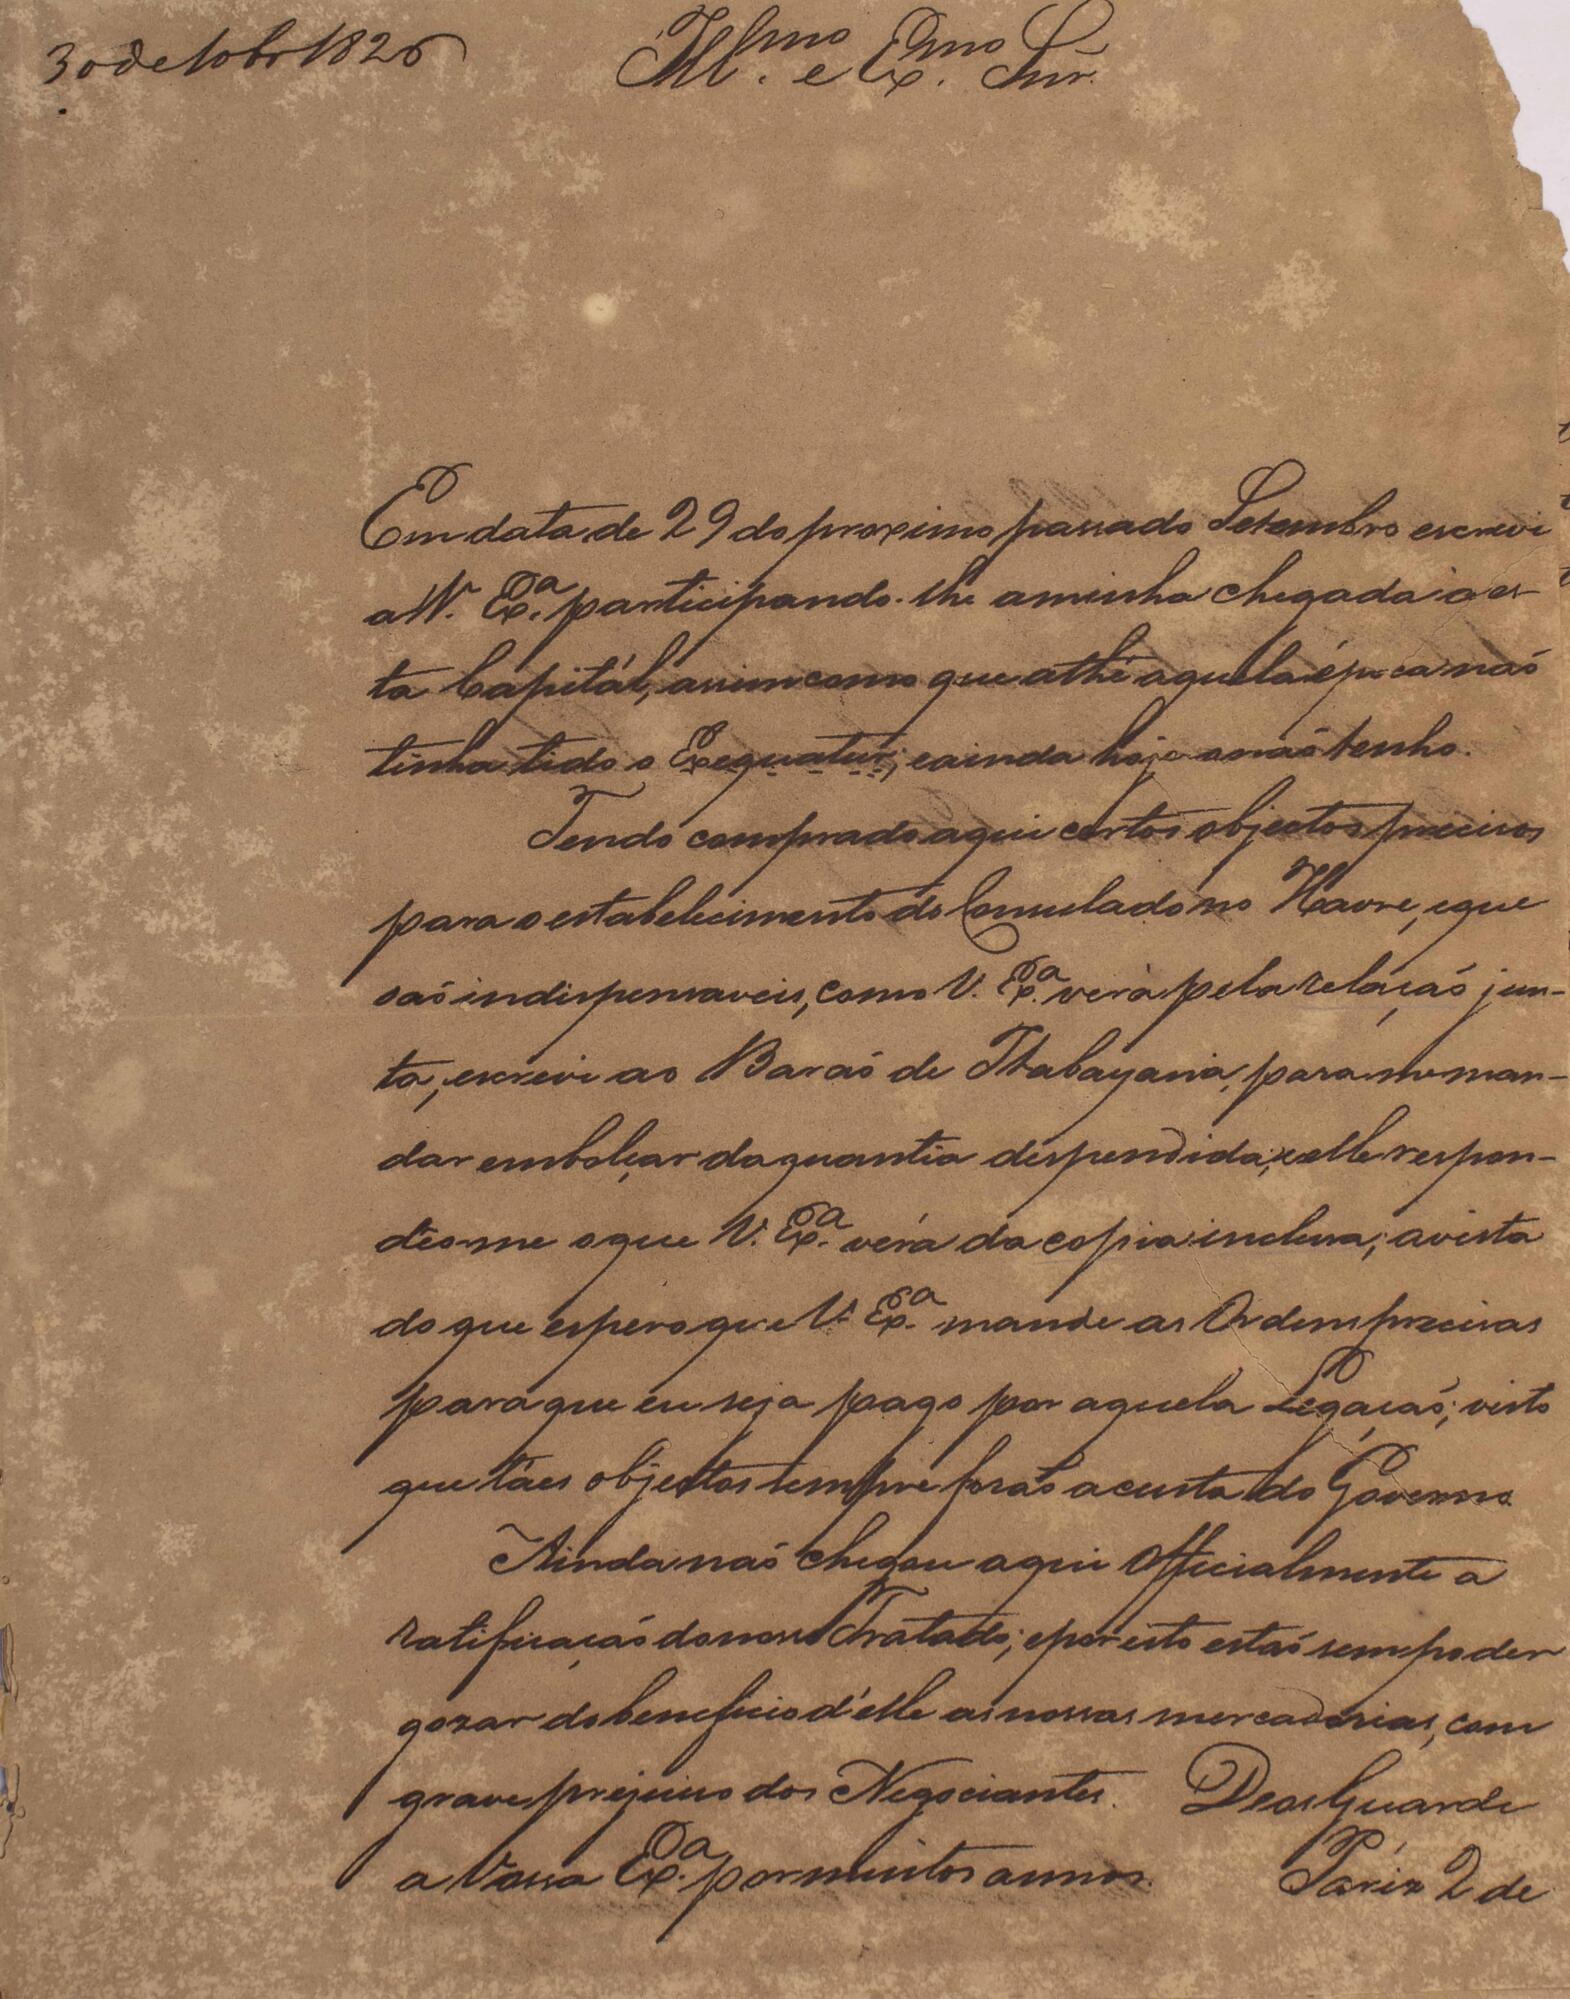 3 de 8obro 1826
Ill.mo e Ex.mo Snr.
Em data de 29 do proximo passado Setembro escrevi
a V. Ex.a participando-lhe a minha chegada a es-
ta Capitál, assim como que athé aquela época naõ
tinha tido o Exequatur; e ainda hoje o naõ tenho.
Tendo comprado aqui certos objectos precisos
para o estabelecimento do Consulado no Havre, e que
saõ indispensaveis, como V. Ex.a verá pela relaçaõ jun-
ta, escrevi ao Baraõ de Itabayana, para me man-
dar embolçar da quantia despendida; e elle respon-
deo-me o que V. Ex.a verá da copia incluza; a vista
do que espero que V. Ex.a mande as Ordens precisas
para que eu seja pago por aquela Legaçaõ; visto
que táes objectos sempre foraõ a custa do Governo
Ainda naõ chegou aqui Officialmente a
ratificaçaõ do nosso Tratado; e por isto estaõ sem poder
gozar do beneficio d'elle as nossas mercadorias, com
grave prejuizo dos Negociantes. Deos Guarde
a Vossa Ex.a por muitos annos. Pariz 2 de